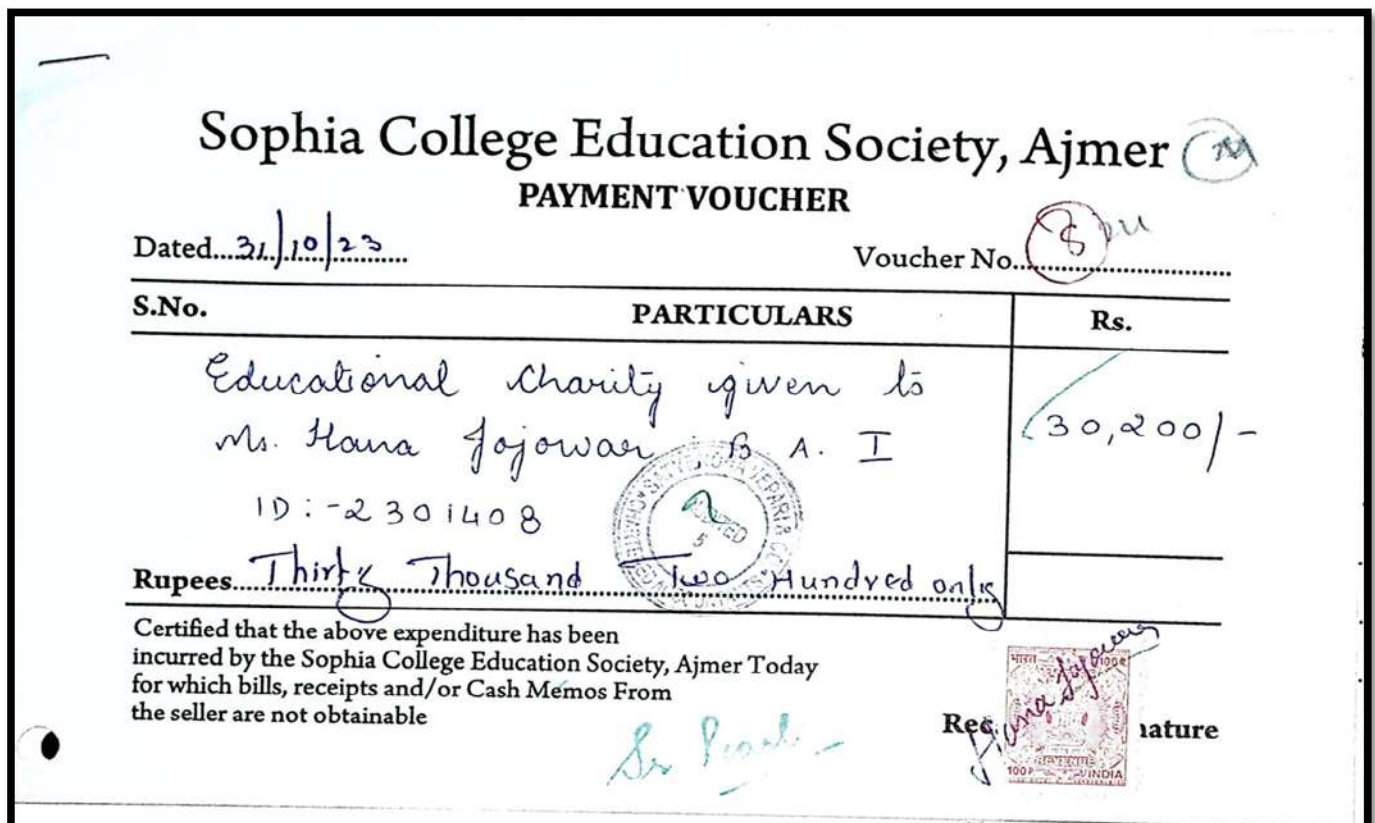 Sophia College Education Society, Ajmer
PAYMENT VOUCHER
Dated....31/10/23........
Voucher No..8..............
S.No. PARTICULARS Rs.
Educational Charity given to
Ms. Hana Jojowar B A. I
30,200/-
ID:-2301408
Rupees....Thirty Thousand Two Hundred only
Certified that the above expenditure has been
incurred by the Sophia College Education Society, Ajmer Today
for which bills, receipts and/or Cash Memos From
the seller are not obtainable
भारत 100P
Hana Jojowar
REVENUE
100P INDIA